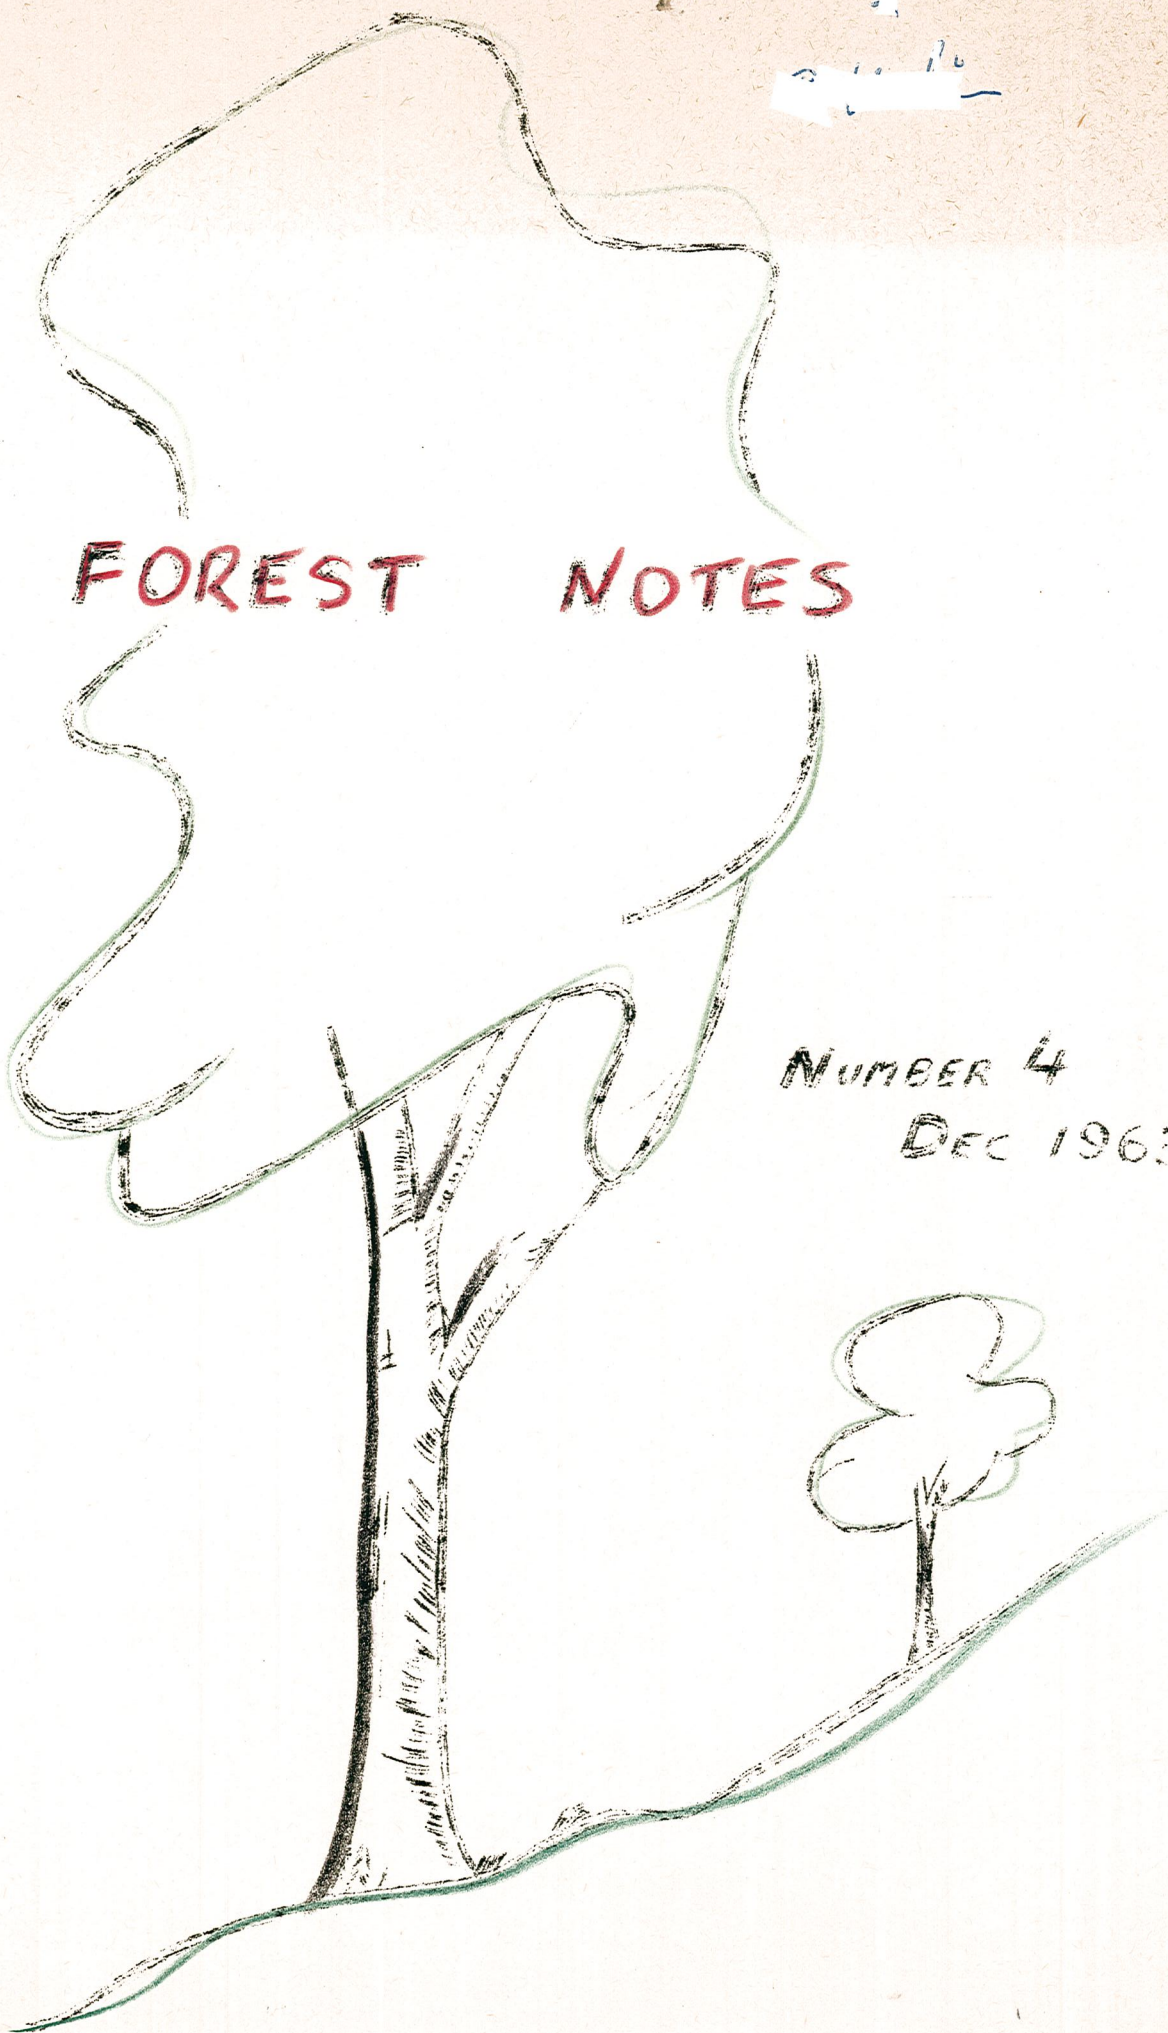 FOREST NOTES
NUMBER 4
DEC 1963